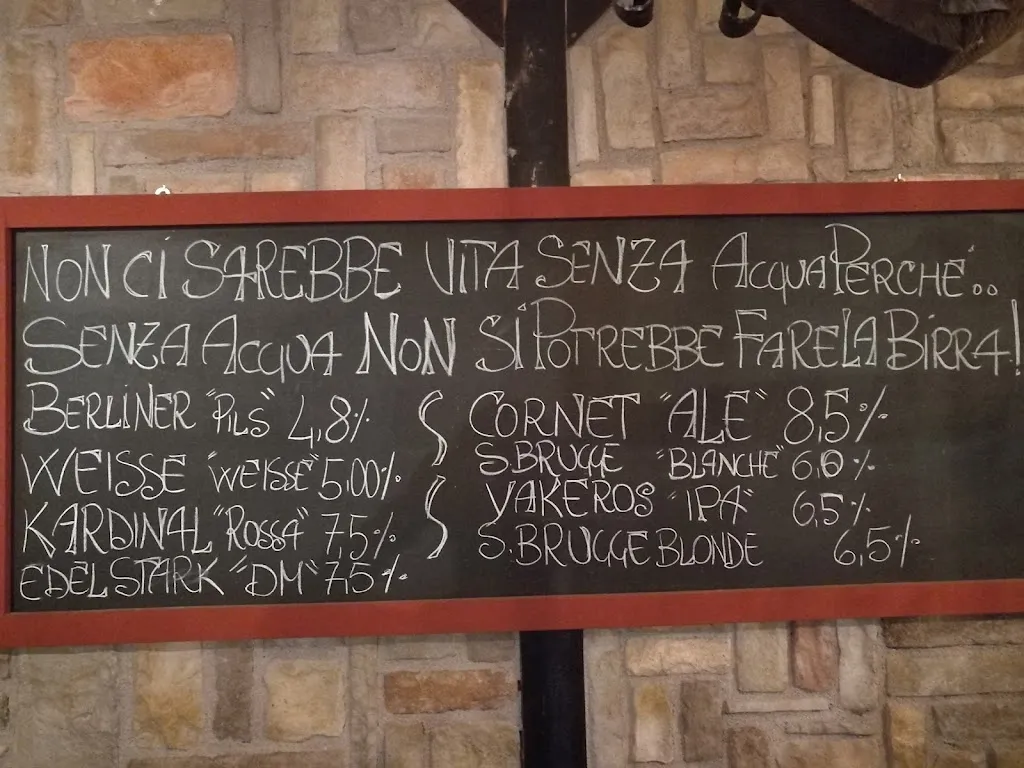 NON CI SAREBBE VITA SENZA ACQUA PERCHÉ..
SENZA ACQUA NON SI POTREBBE FARE LA BIRRA!
BERLINER "PILS" 4,8%
WEISSE "WEISSE" 5,00%
KARDINAL "ROSSA" 7,5%
EDEL STARK "DM" 7,5%
CORNET "ALE" 8,5%
S.BRUGGE "BLANCHE" 6,0%
YAKEROS "IPA" 6,5%
S.BRUGGE BLONDE 6,5%